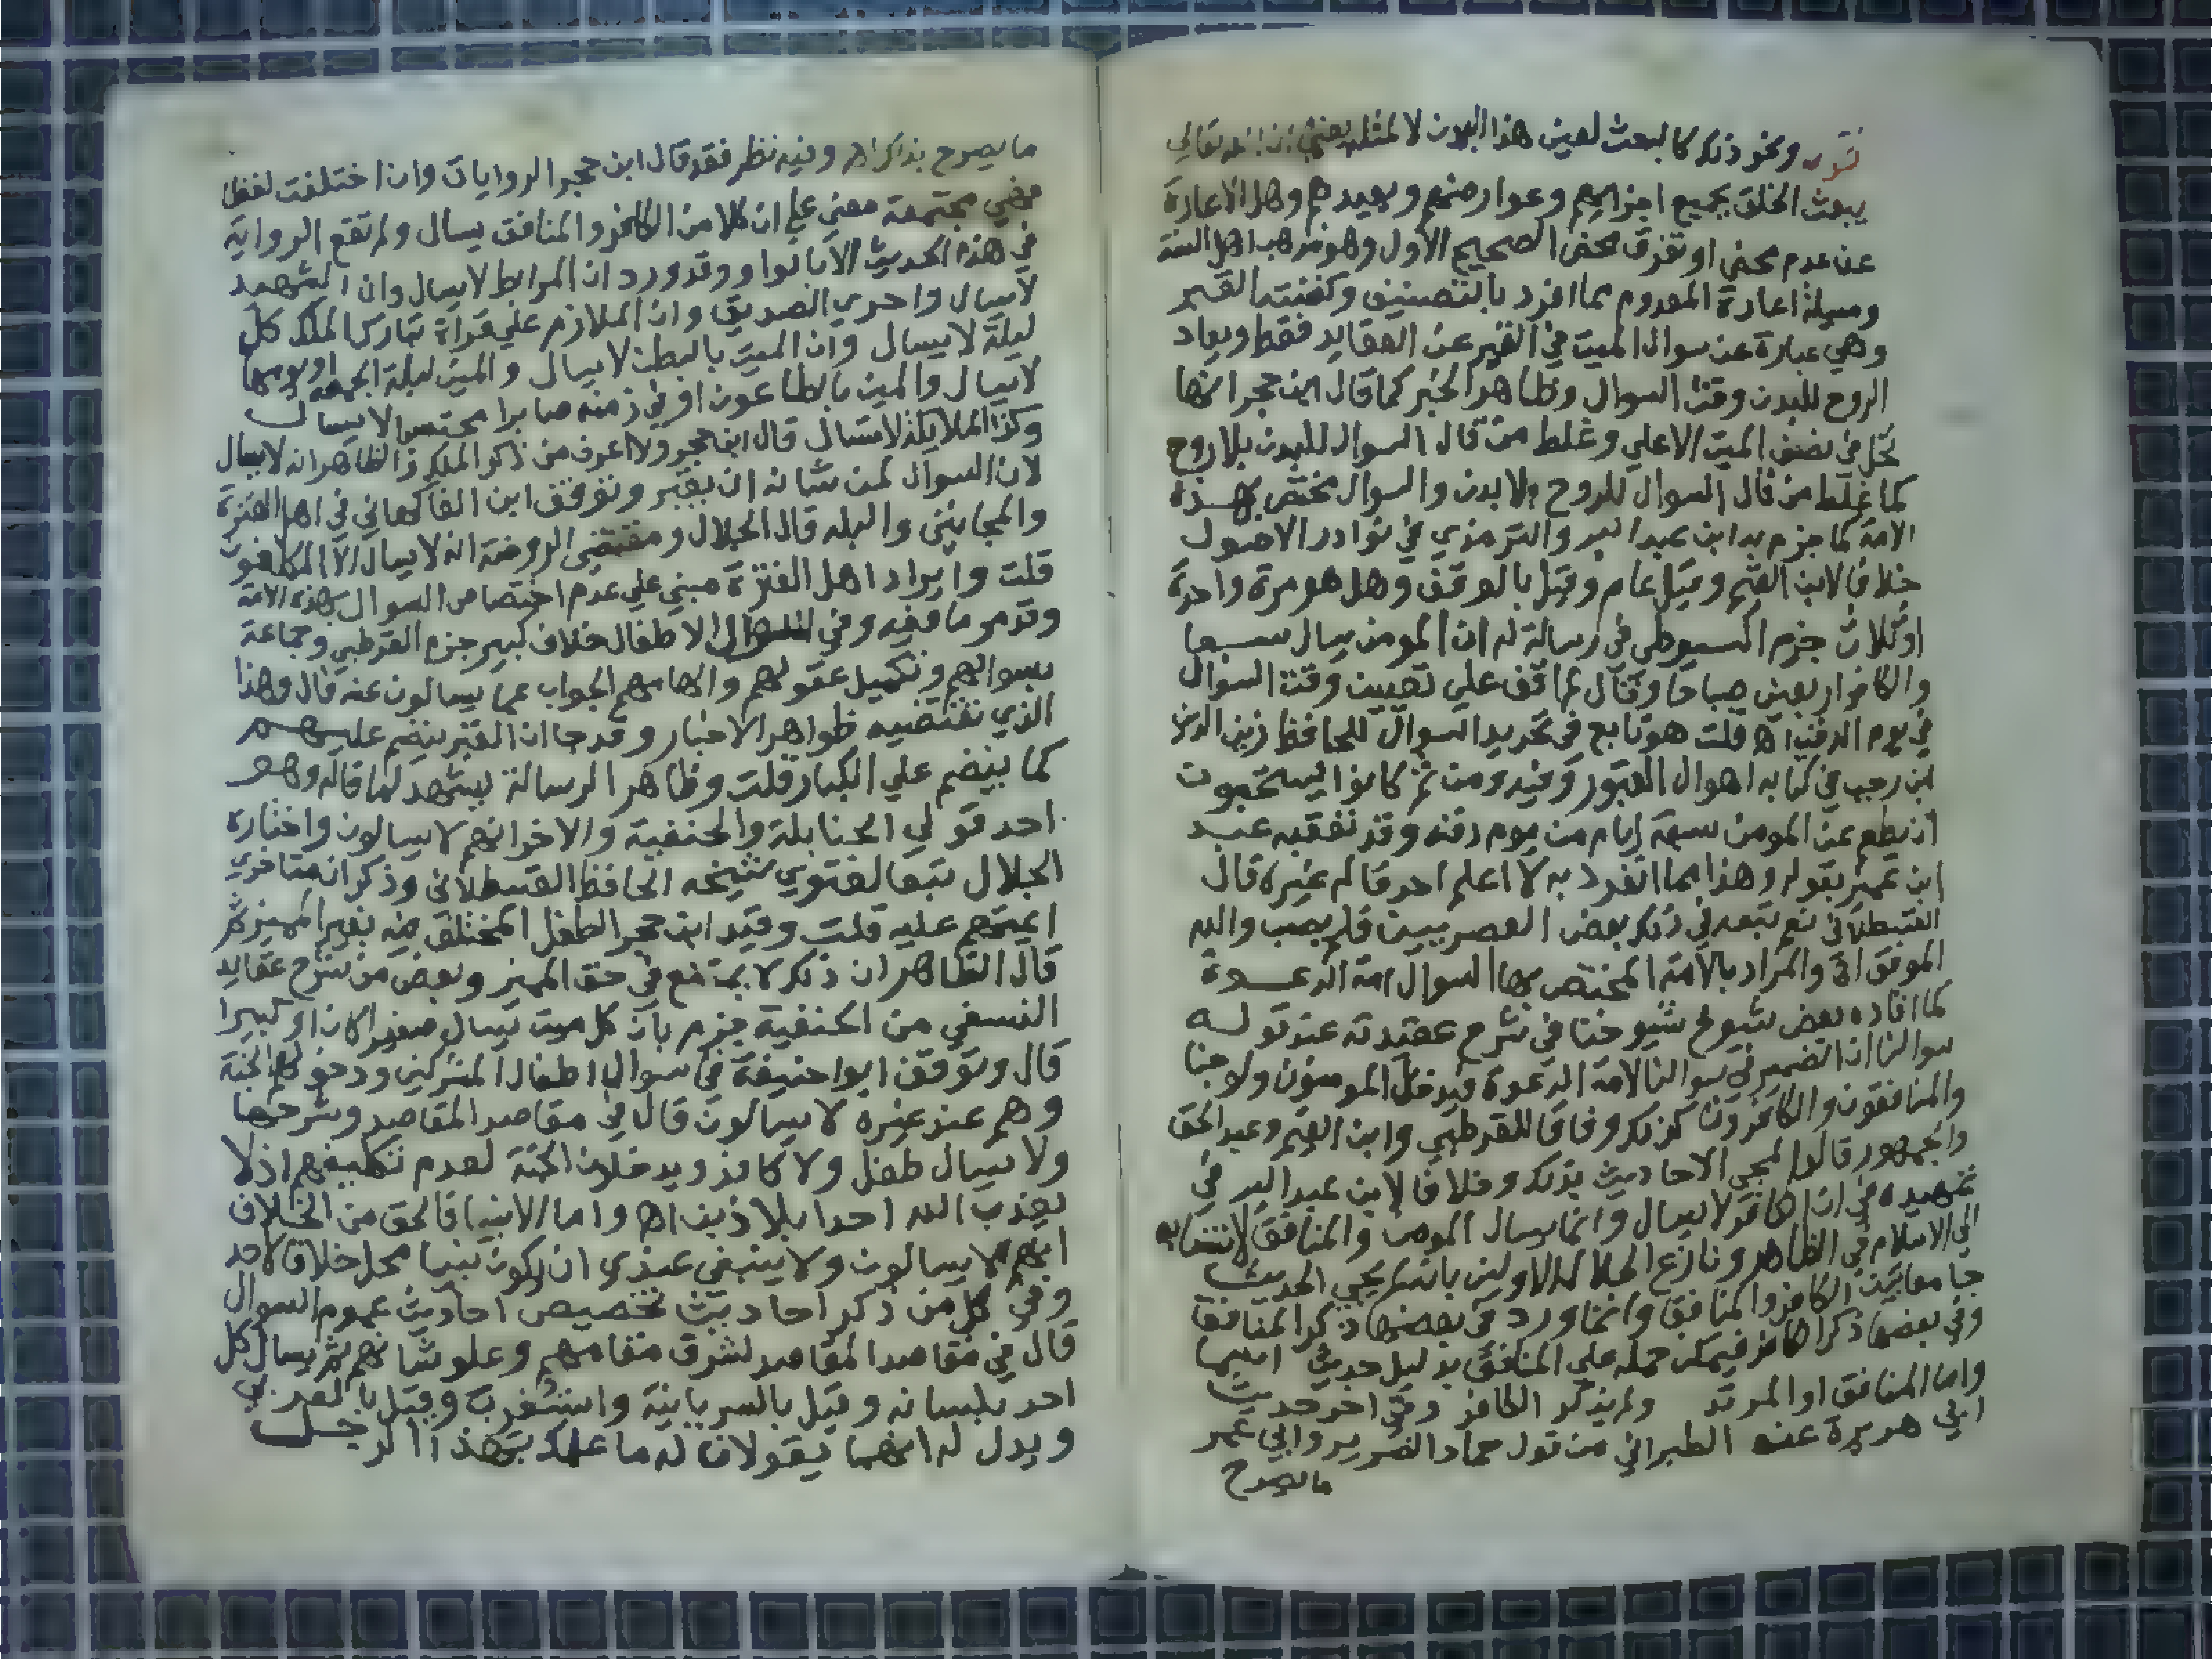 قوله ونحو ذلك كالبعث لعين هذا البدن لا لمثله يعني ان الله تعالي
يبعث الخلق بجميع اجزايهم وعوارضهم ويعيدهم وهل الاعادة
عن عدم محض او تفرق محض الصحيح الاول وهو مذهب اهل السنة
ومسيلة اعادة المعدوم مما افرد بالتصنيف وكفتنة القبر
وهي عبارة عن سوال الميت في القبر عن العقايد فقط ويعاد
الروح للبدن وقت السوال وظاهر الخبر كما قال ابن حجر انها
تحل في نصف الميت الاعلي وغلط من قال السوال للبدن بلا روح
كما غلط من قال السوال للروح بلا بدن والسوال مختص بهذه
الامة كما جزم به ابن عبد البر والترمذي في نوادر الاصول
خلافا لابن القيم وقيل عام وقيل بالوقف وهل هو مرة واحدة
او ثلاث جزم السيوطي في رسالة له ان المومن يسال سبعا
والكافر اربعين صباحا وقال لم اقف علي تعيين وقت السوال
في يوم الدفن اه قلت هو تابع في تحديد السوال للحافظ زين الدين
ابن رجب في كتابه اهوال القبور وفيه ومن ثم كانوا يستحبون
ان يطعم عن المومن سبعة ايام من يوم دفنه وقد تفقبه عبد
ابن عمير بقوله وهذا مما انفرد به لا اعلم احد قاله غيره قال
القسطلاني نعم تبعه في ذلك بعض العصريين فلم يصب والله
الموفق اه والمراد بالامة المختص بها السوال امة الدعوة
كما افاده بعض شيوخ شيوخنا في شرح عقيدته عند قوله
سوالنا ان الضمير في سوالنا لامة الدعوة فيدخل المومنون ولو جنا
والمنافقون والكافرون كذلك وفاقا للقرطبي وابن القيم وعبد الحق
والجمهور قالوا لمجي الاحاديث بذلك وخلافا لابن عبد البر في
تمهيده في ان الكافر لا يسال وانما يسال المومن والمنافق لانتسابه
الي الاسلام في الظاهر ونازع الجلال الاولين بانه لم يجي الحديث
جامعا بين الكافر والمنافق وانما ورد في بعضها ذكر المنافق
وفي بعضها ذكر الكافر فيمكن حمله علي المنافق بدليل حديث اسما
واما المنافق او المرتد ولم يذكر الكافر وفي اخر حديث
ابي هريرة عند الطبراني من قول حماد الضرير وابي عمر
ما يصرح
ما يصرح بذاك اه وفيه نظر فقد قال ابن حجر الروايات وان اختلفت لفظا
فهي مجتمعة معني علي ان كلا من الكافر والمنافق يسال ولم تقع الرواية
في هذه الحديث الا باو وقد ورد ان المرابط لا يسال وان الشهيد
لا يسال واحري الصديق وان الملازم علي قراة تبارك الملك كل
ليلة لا يسال وان الميت بالبطن لا يسال والميت ليلة الجمعه او يومها
لا يسال والميت بالطاعون او في زمنه صابرا محتسبا لا يسال
وكذا الملايكة لا تسال قال ابن حجر ولا اعرف من ذكر الملك والظاهر انه لا يسال
لان السوال لمن شانه ان يقبر وتوقف ابن الفاكهاني في اهل الفترة
والمجانين والبله قال الجلال ومقتضي الروضة انه لا يسال الا المكلفون
قلت وايراد اهل الفترة مبني علي عدم اختصاص السوال بهذه الامة
وقد مر ما فيه وفي سوال الاطفال خلاف كبير جزم القرطبي وجماعة
بسوالهم وتكميل عقولهم والهامهم الجواب عما يسالون عنه قال وهذا
الذي تقتضيه ظواهر الاخبار وقد جا ان القبر ينضم عليهم
كما ينضم علي الكبار قلت وظاهر الرسالة يشهد لما قاله وهو
احد قولي الحنابلة والحنفية والاخر انهم لا يسالون واختاره
الجلال تبعا لفتوي شيخه الحافظ القسطلاني وذكر ان متاخري
ايمتهم عليه قلت وقيد ابن حجر الطفل المختلف فيه بغير المميز ثم
قال الظاهر ان ذلك لا يمتنع في حق المميز وبعض من شرح عقايد
النسفي من الحنفية جزم بان كل ميت يسال صغيرا كان او كبيرا
قال وتوقف ابو احنيفة في سوال اطفال المشركين ودخولهم الجنة
وهم عند غيره لا يسالون قال في مقاصد المقاصد وشرحها
ولا يسال طفل ولا كافر ويدخلان الجنة لعدم تكليفهم اذ لا
يعذب الله احدا بلا ذنب اه واما الانبيا فالحق من الخلاف
انهم لا يسالون ولا ينبغي عندي ان يكون نبينا محل خلاف لاحد
وفي كل من ذكر احاديث تخصيص احاديث عموم السوال
قال في مقاصد المقاصد لشرف مقامهم وعلو شانهم ثم يسال كل
احد بلسانه وقيل بالسريانية واستغرب وقيل بالعربي
ويدل له انهما يقولان له ما علمك بهذا الرجل